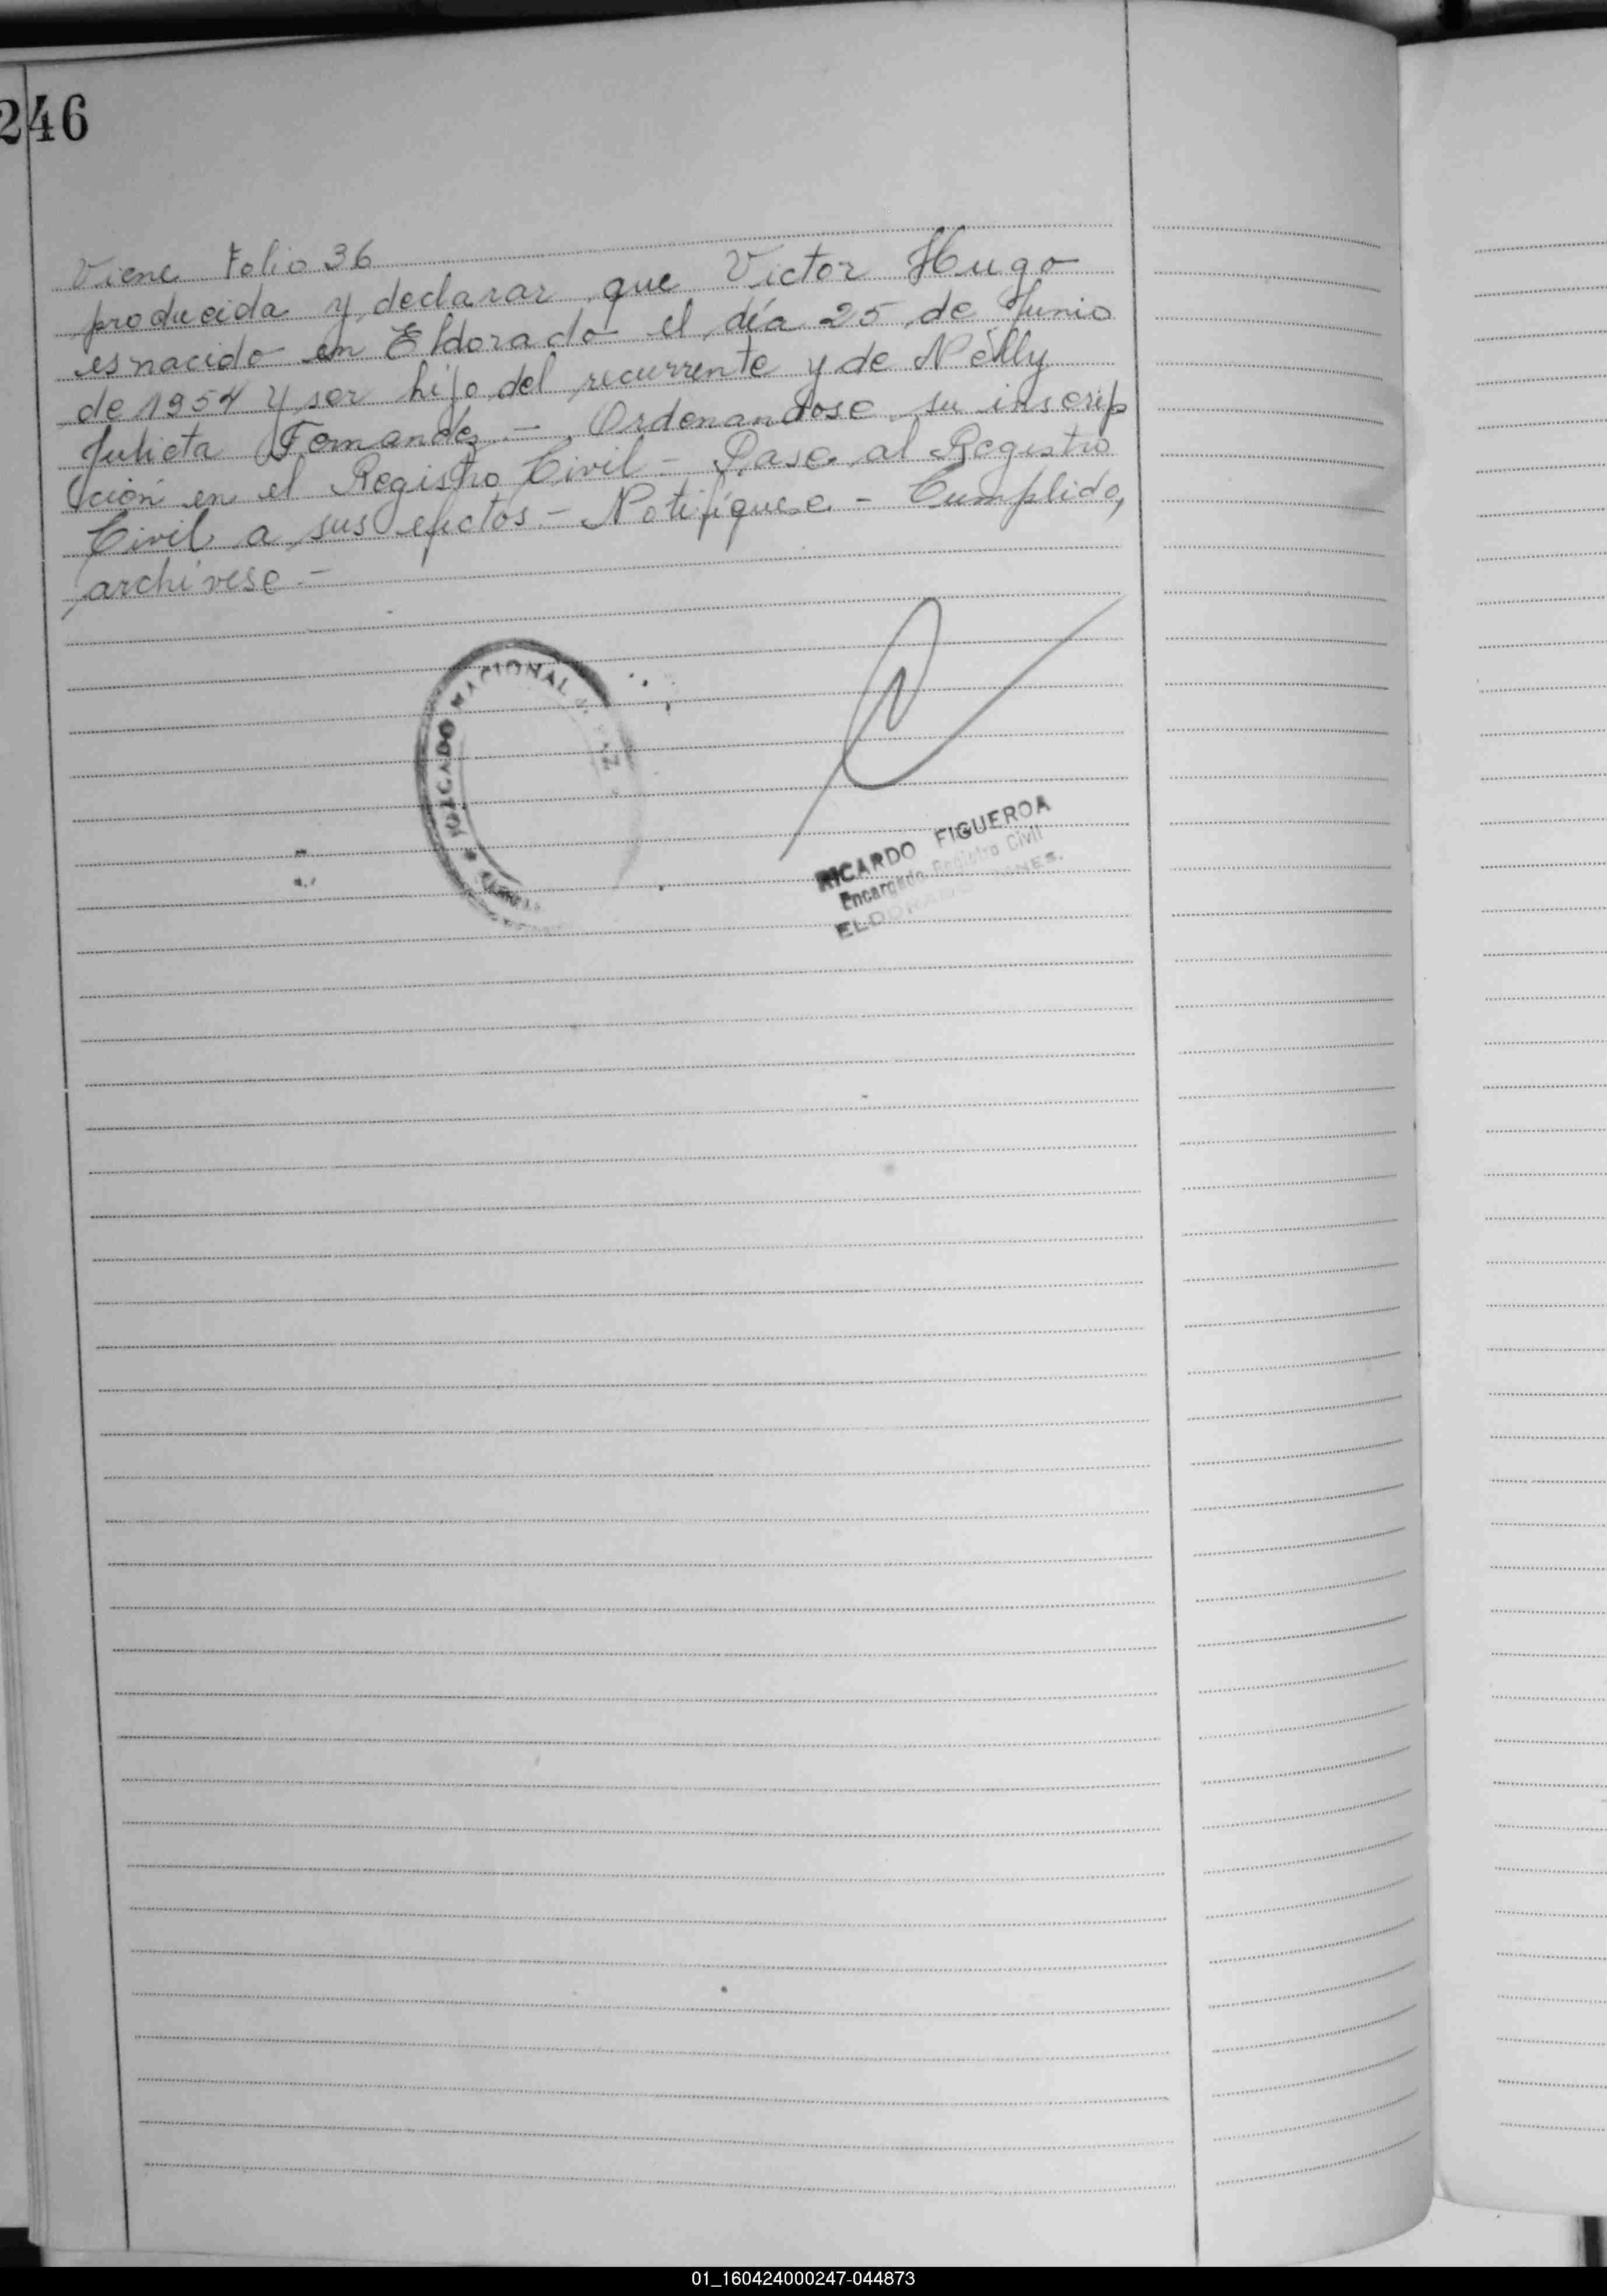 246
Viene Folio 36
producida y declarar que Victor Hugo
es nacido en Eldorado el día 25 de Junio
de 1954 y ser hijo del recurrente y de Nélly
Julieta Fernandez.- Ordenandose su inscrip
ción en el Registro Civil - Pase al Registro
Civil a sus efectos.- Notifíquese - Cumplido,
archívese.-
JUZGADO NACIONAL
RICARDO FIGUEROA
Encargado Registro Civil
ELDORADO
01_160424000247-044873